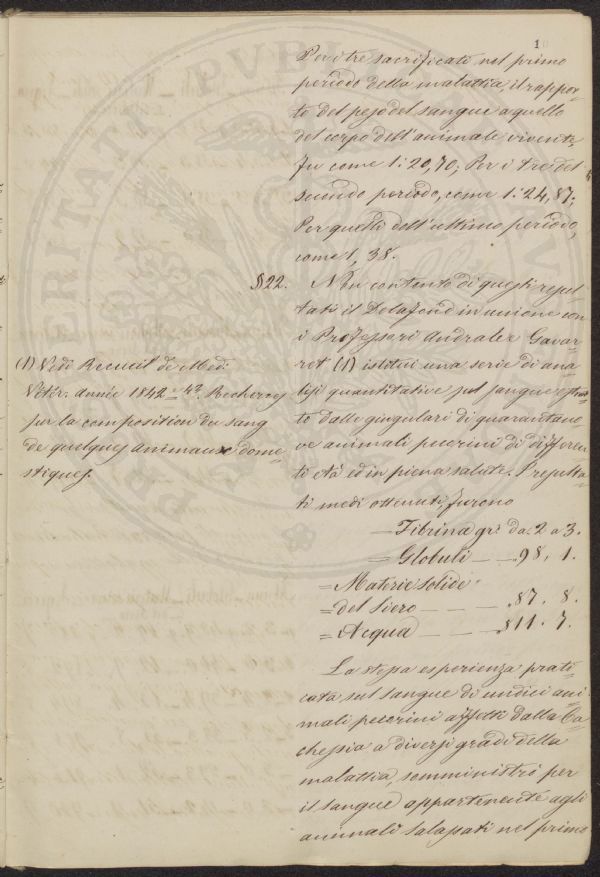 1
Per i tre sacrificati nel primo
periodo della malattia, il rappor=
to del peso del sangue a quello
del corpo dell'animale vivente
fu come 1: 20,70; Per i tre del
secondo periodo, come 1: 24,87;
Per quelli dell'ultimo periodo,
come 1, 38.
§22. Non contento di questi resul=
tati il Delafond in unione con
i Professori Andral e Gavar=
ret (1) istituì una serie di ana=
lisi quantitative sul sangue estrat=
to dalle giugulari di quarantano=
ve animali pecorini di differen=
ti età ed in piena salute. I resulta=
ti medi ottenuti, furono
= Fibrina gr: da. 2 a 3.
= Globuli — — 98, 1.
= Materie solide
= del siero — — — 87. 8.
= Acqua — — — 811. 7.
La stessa esperienza prati=
cata sul sangue di undici ani=
mali pecorini affetti dalla Ca=
chessia a diversi gradi della
malattia, somministrò per
il sangue appartenente agli
animali salassati nel primo
(1) Vedi Recueil de Med:
Vétér. année 1842 = 4ª. Recherches
sur la composition du sang
de quelques animaux dome=
stiques.
PERITATI
PVBL